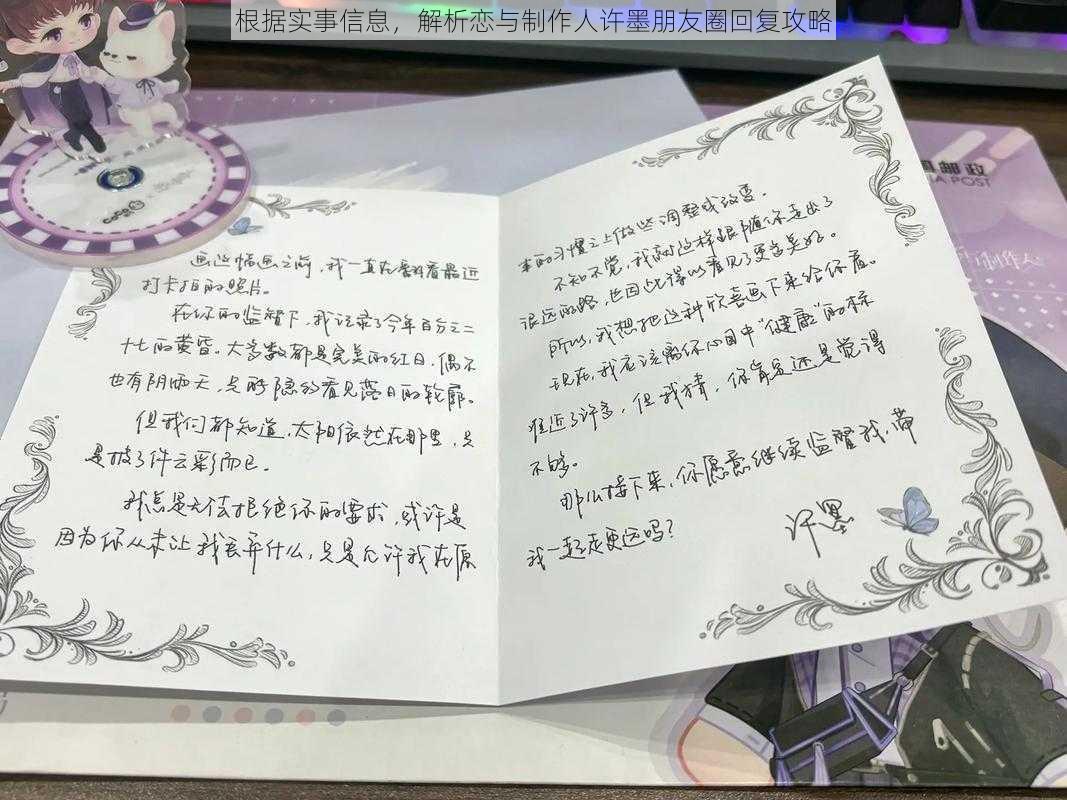 根据实事信息，解析恋与制作人许墨朋友圈回复攻略
邮政
A POST
制作人
画这幅画之前，我一直在翻看最近
打卡拍的照片。
在你的监督下，我记录了今年百分之二
十七的黄昏。大多数都是完美的红日，偶尔
也有阴雨天，只能隐约看见落日的轮廓。
但我们都知道，太阳依然在那里，只
是披了件云彩而已。
我总是无法拒绝你的要求，或许是
因为你从未让我丢弃什么，只是允许我在原
本的习惯之上做些调整或改变。
不知不觉，我就这样跟随你走出了
很远的路，也因此得以看见了更多美好。
所以，我想把这种欣喜画下来给你看。
现在，我应该离你心目中“健康”的标
准近了许多，但我猜，你肯定还是觉得
不够。
那么接下来，你愿意继续监督我，带
我一起走更远吗？
许墨